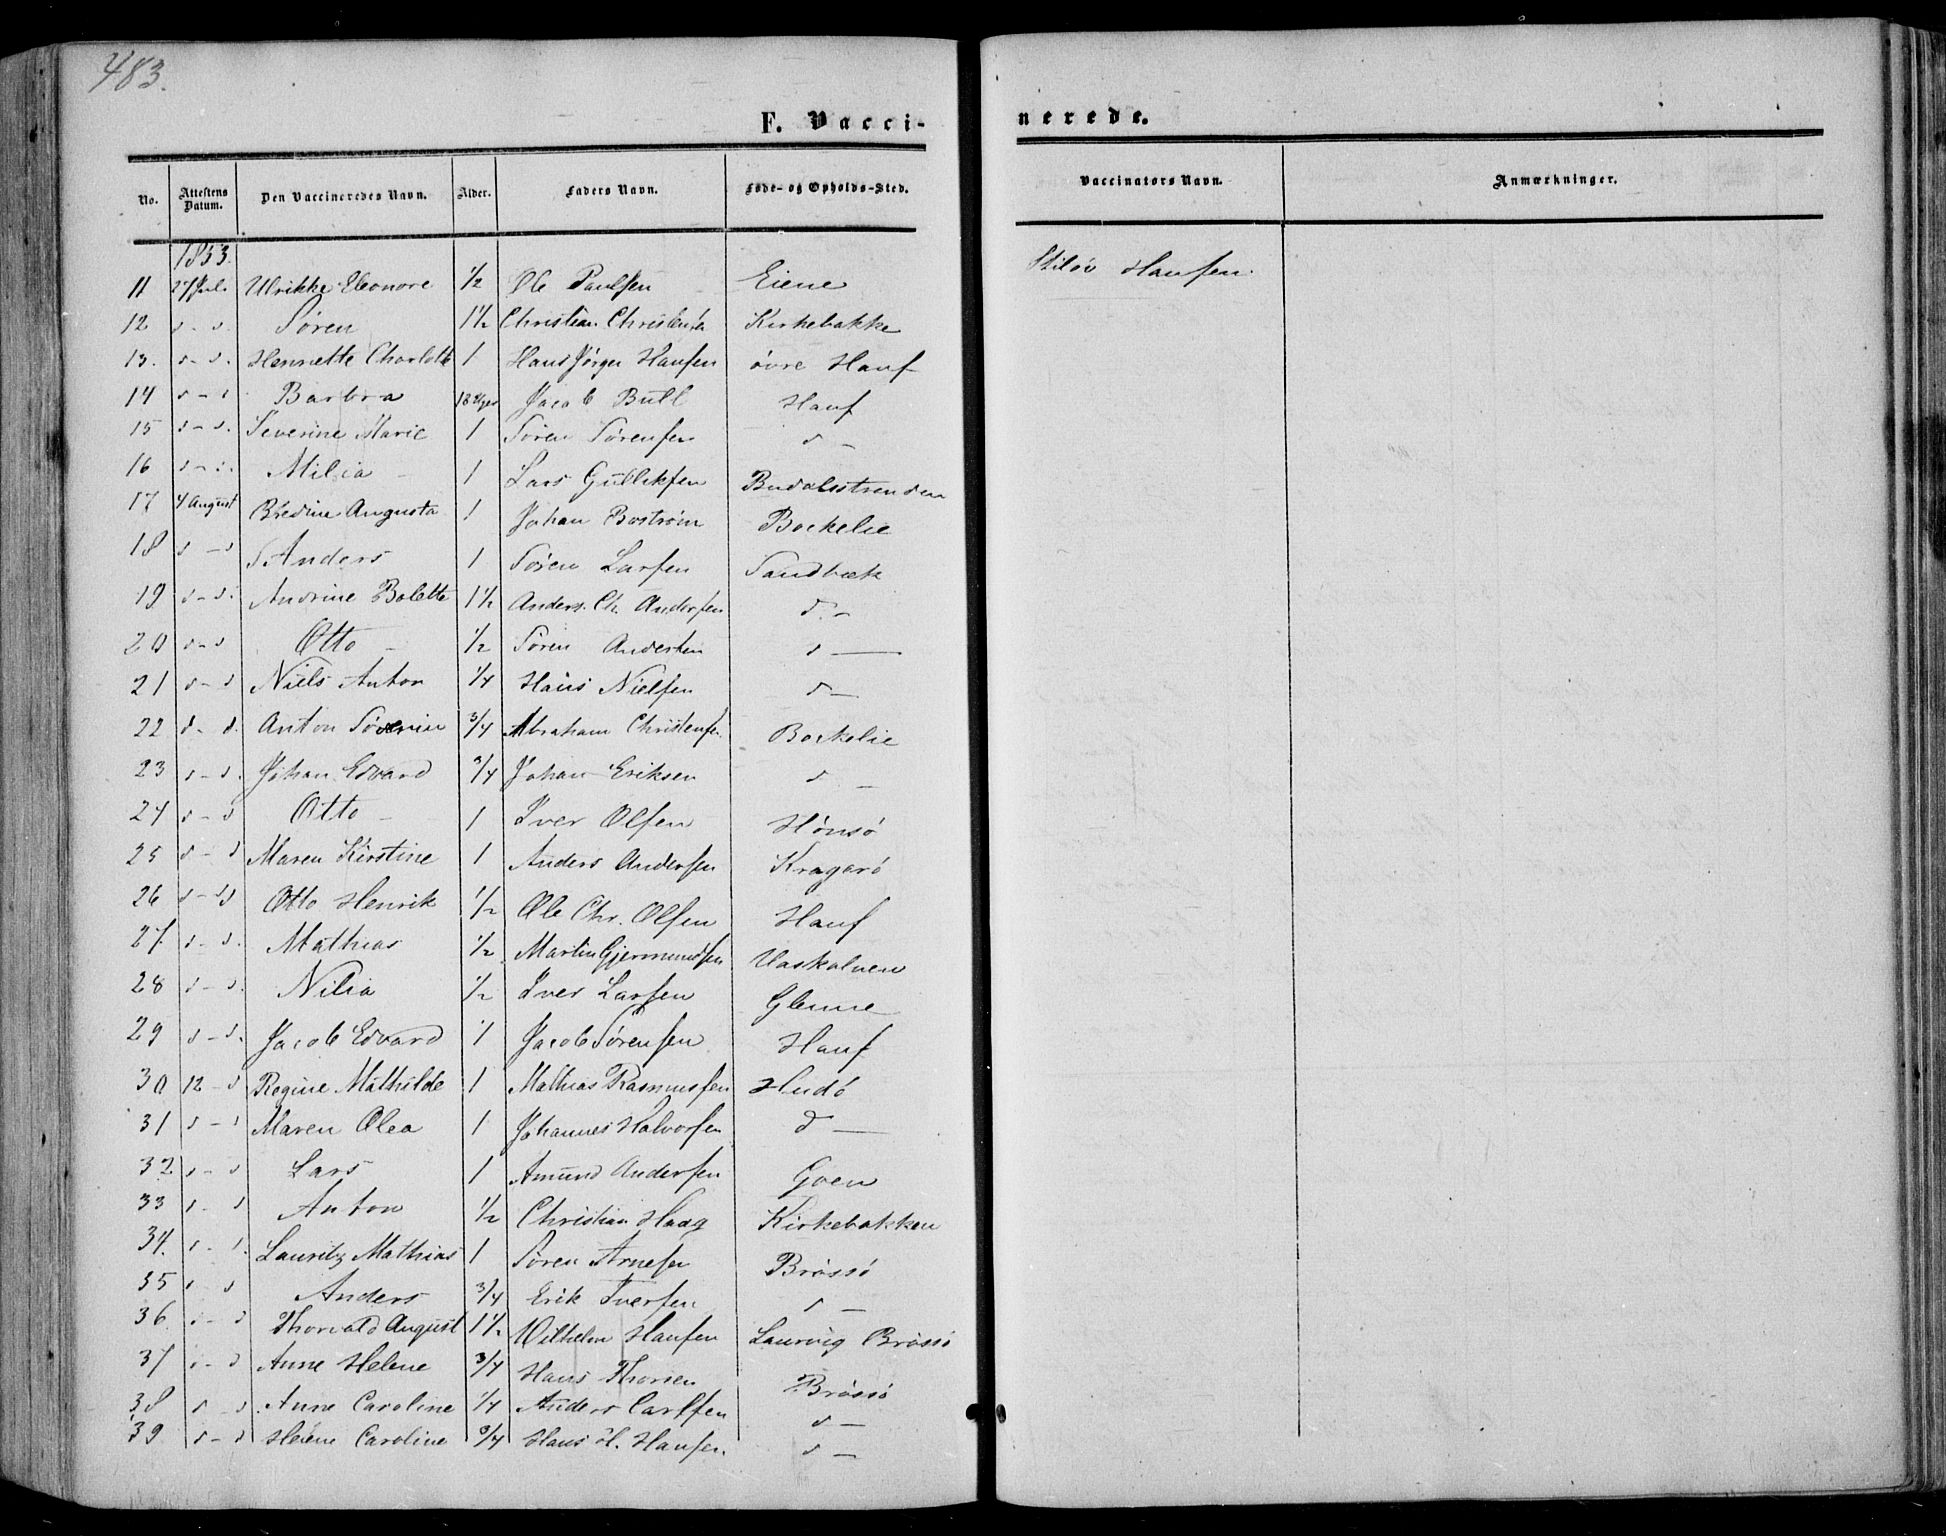 483.
F. Vacci-
nerede.
No. Attestens Datum. Den Vaccineredes Navn. Alder. Faders Navn. Føde- og Opholds-Sted.
Vaccinators Navn. Anmærkninger.
1853.
11 27 Juli Ulrikke Eleonore 1/2 Ole Paulsen Eiene Hansen.
12 d - d. Søren 1 1/2 Christian Christensen Kirkebakke
13. d - d. Hennette Charlotte 1 Hans Jørgen Hansen øvre Hauf
14 d - d Barbra 18 Uger Jacob Bull Hauf
15 d - d. Severine Marie 1 Søren Sørensen d -
16 d - d. Milia 1 Lars Gulliksen Budalsstranden
17 4 August Bredine Augusta 1 Johan Bostrøm Boekelie
18 d - d Anders 1 Søren Larsen Sandbæk
19 d - d. Andrine Bolette 1 1/2 Anders Ch. Andersen d -
20 d - d Otto 1/2 Søren Andersen d -
21 d - d Niels Anton 1/4 Hans Nielsen d -
22 d - d. Anton Severin 3/4 Abraham Christensen Boekelie
23 d - d. Johan Edvard 3/4 Johan Eriksen d -
24 d - d Otto 1 Iver Olsen Hønsø
25 d - d Maren Kirstine 1 Anders Andersen Kragerø
26 d - d Otto Henrik 1/2 Ole Chr. Olsen Hauf
27. d - d. Mathias 1/2 Martin Gjermundsen Vaskalven
28 d - d. Nilia 1/2 Iver Larsen Glenne
29 d - d. Jacob Edvard 1 Jacob Sørensen Hauf
30 12 - d Regine Mathilde 1 Mathias Rasmussen Hudø
31 d - d Maren Olea 1 Johannes Halvorsen d -
32 d - d Lars 1 Amund Andersen Goen
33 d - d Anton 1/2 Christian Haag Kirkebakken
34. d - d. Lauritz Mathias 1 Søren Arnesen Brøssø
35 d - d Anders 3/4 Erik Iversen d -
36 d - d Thorvald August 1 1/2 Wilhelm Hansen Laurvig Brøssø
37 d - d Anne Helene 3/4 Hans Thorsen Brøssø
38 d - d Anne Caroline 1/4 Anders Carlsen d -
39 d - d Helene Caroline 3/4 Hans H. Hansen. d -